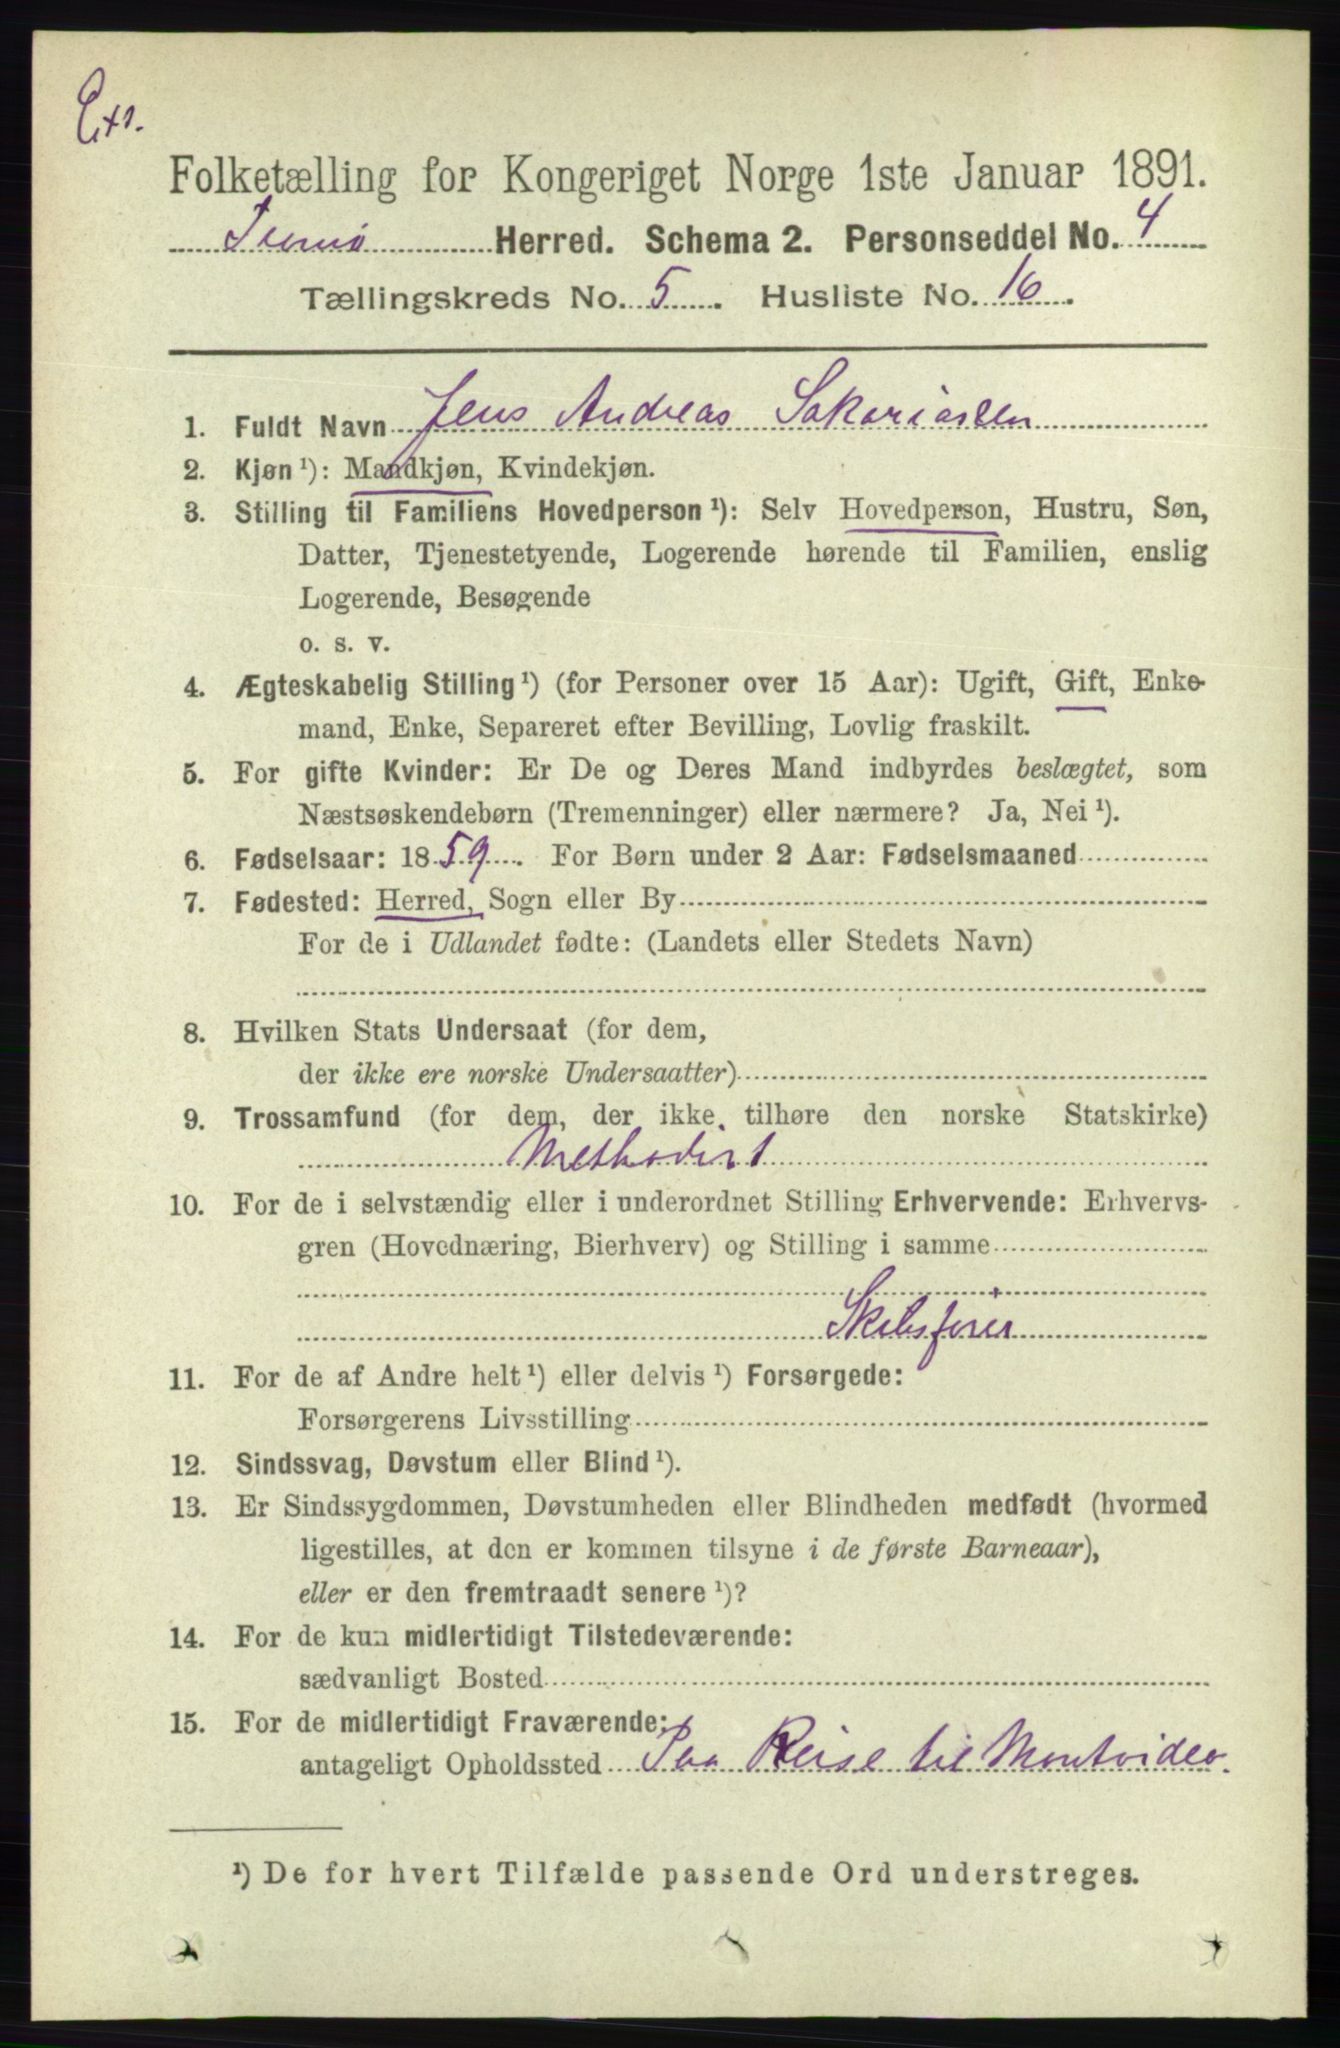 Ext.
Folketælling for Kongeriget Norge 1ste Januar 1891.
Tromø Herred. Schema 2. Personseddel No. 4
Tællingskreds No. 5. Husliste No. 16.
1. Fuldt Navn Jens Andreas Sakariassen
2. Kjøn ¹): Mandkjøn, Kvindekjøn.
3. Stilling til Familiens Hovedperson ¹): Selv Hovedperson, Hustru, Søn,
Datter, Tjenestetyende, Logerende hørende til Familien, enslig
Logerende, Besøgende
o. s. v.
4. Ægteskabelig Stilling ¹) (for Personer over 15 Aar): Ugift, Gift, Enke-
mand, Enke, Separeret efter Bevilling, Lovlig fraskilt.
5. For gifte Kvinder: Er De og Deres Mand indbyrdes beslægtet, som
Næstsøskendebørn (Tremenninger) eller nærmere? Ja, Nei ¹).
6. Fødselsaar: 1859. For Børn under 2 Aar: Fødselsmaaned
7. Fødested: Herred, Sogn eller By
For de i Udlandet fødte: (Landets eller Stedets Navn)
8. Hvilken Stats Undersaat (for dem,
der ikke ere norske Undersaatter)
9. Trossamfund (for dem, der ikke tilhøre den norske Statskirke)
Methodist
10. For de i selvstændig eller i underordnet Stilling Erhvervende: Erhvervs-
gren (Hovednæring, Bierhverv) og Stilling i samme
Skibsfører
11. For de af Andre helt ¹) eller delvis ¹) Forsørgede:
Forsørgerens Livsstilling
12. Sindssvag, Døvstum eller Blind ¹).
13. Er Sindssygdommen, Døvstumheden eller Blindheden medfødt (hvormed
ligestilles, at den er kommen tilsyne i de første Barneaar),
eller er den fremtraadt senere ¹)?
14. For de kun midlertidigt Tilstedeværende:
sædvanligt Bosted
15. For de midlertidigt Fraværende:
antageligt Opholdssted Paa Reise til Montvideo.
¹) De for hvert Tilfælde passende Ord understreges.